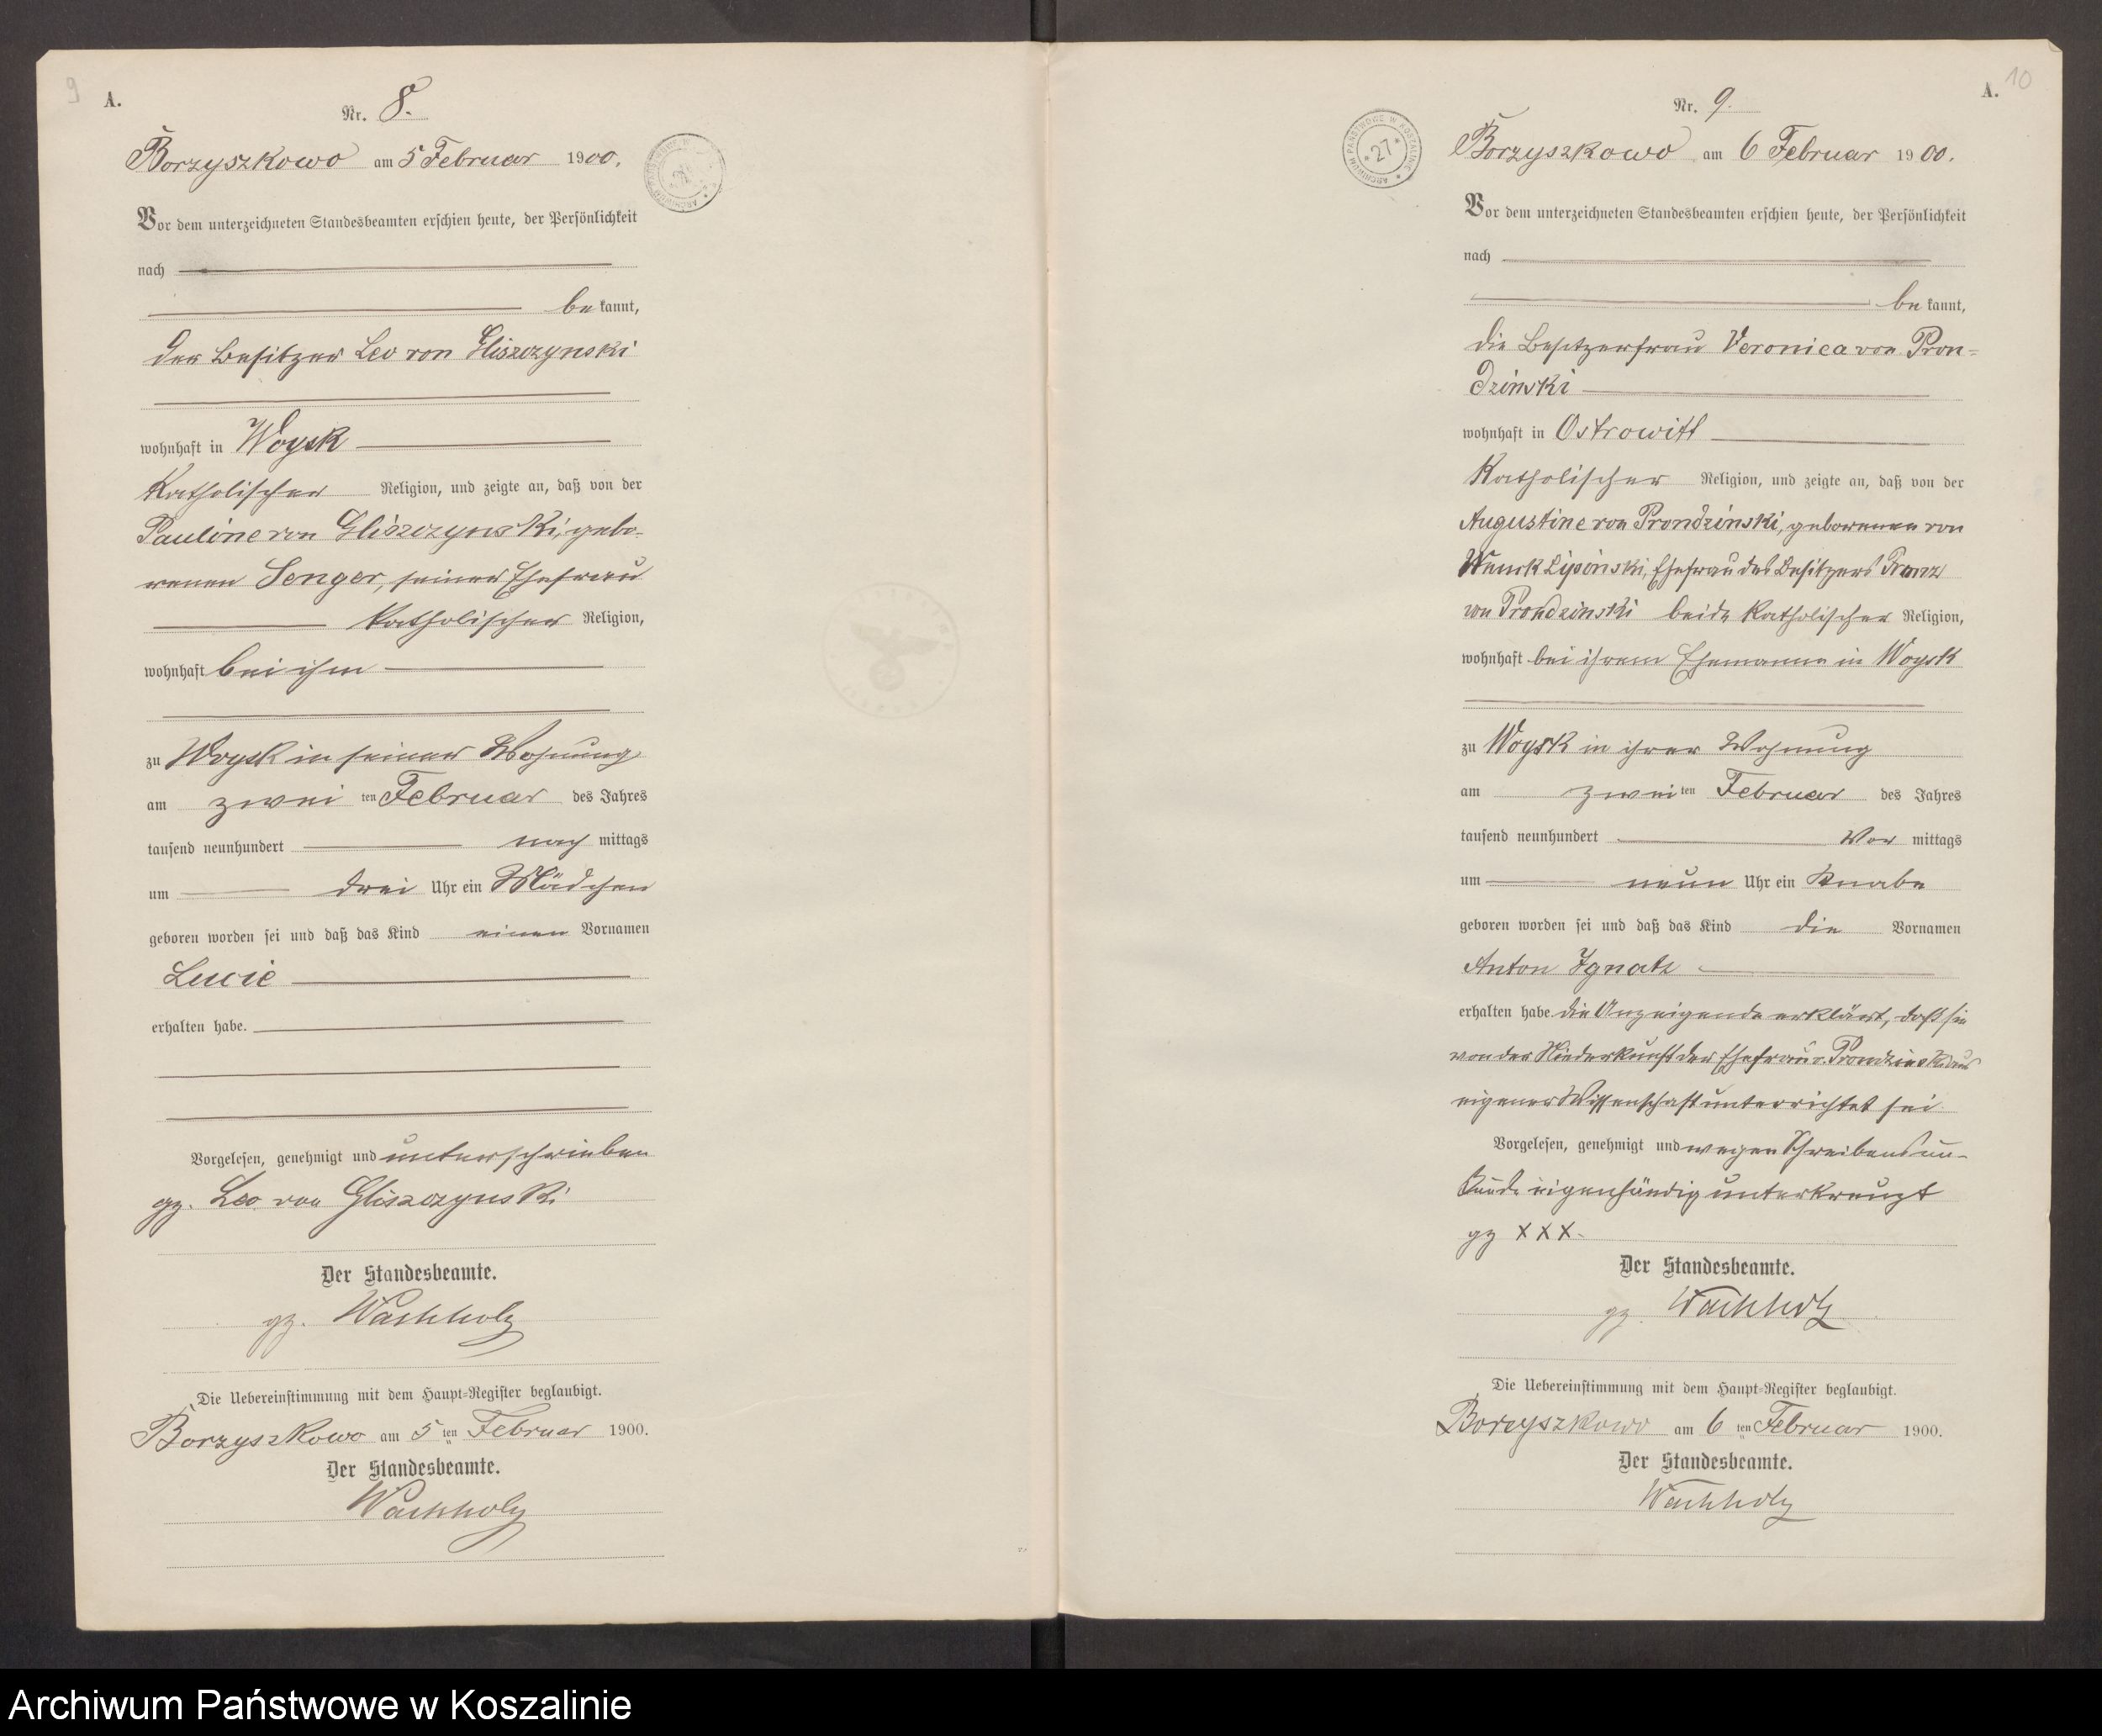 9
A.
Nr. 8.
Borzyszkowo am 5 Februar 1900.
Vor dem unterzeichneten Standesbeamten erschien heute, der Persönlichkeit
nach
bekannt,
der Besitzer Leo von Gliszczynski
wohnhaft in Woysk
katholischer Religion, und zeigte an, daß von der
Pauline von Gliszczynski, gebo-
renen Senger, seiner Ehefrau
katholischer Religion,
wohnhaft bei ihm
zu Woysk in seiner Wohnung
am zwei ten Februar des Jahres
tausend neunhundert nach mittags
um drei Uhr ein Mädchen
geboren worden sei und daß das Kind einen Vornamen
Lucie
erhalten habe.
Vorgelesen, genehmigt und unterschrieben
gz. Leo von Gliszczynski
Der Standesbeamte.
gz. Wachholz
Die Uebereinstimmung mit dem Haupt-Register beglaubigt.
Borzyszkowo am 5 ten Februar 1900.
Der Standesbeamte.
Wachholz
10
A.
Nr. 9.
ARCHIWUM PAŃSTWOWE W KOSZALINIE
27
Borzyszkowo am 6 Februar 1900.
Vor dem unterzeichneten Standesbeamten erschien heute, der Persönlichkeit
nach
bekannt,
die Besitzerfrau Veronica von Pron-
dzinski
wohnhaft in Ostrowitt
katholischer Religion, und zeigte an, daß von der
Augustine von Prondzinski, geborenen von
Wnuck Lipinski, Ehefrau des Besitzers Franz
von Prondzinski beide katholischer Religion,
wohnhaft bei ihrem Ehemanne in Woysk
zu Woysk in ihrer Wohnung
am zwei ten Februar des Jahres
tausend neunhundert Vor mittags
um neun Uhr ein Knabe
geboren worden sei und daß das Kind die Vornamen
Anton Ignatz
erhalten habe. die Anzeigende erklärt, daß sie
von der Niederkunft der Ehefrau v. Prondzinski aus
eigener Wissenschaft unterrichtet sei.
Vorgelesen, genehmigt und wegen Schreibensun-
kunde eigenhändig unterkreuzt
gz XXX.
Der Standesbeamte.
gz. Wachholz
Die Uebereinstimmung mit dem Haupt-Register beglaubigt.
Borzyszkowo am 6 ten Februar 1900.
Der Standesbeamte.
Wachholz
Archiwum Państwowe w Koszalinie